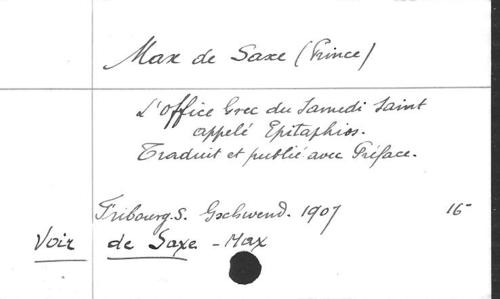 Max de Saxe (Prince)
L'Office Grec du Samedi Saint
appelé Epitaphios.
Traduit et publié avec Préface.
Fribourg.S. Gschwend. 1907 16-
Voir de Saxe - Max